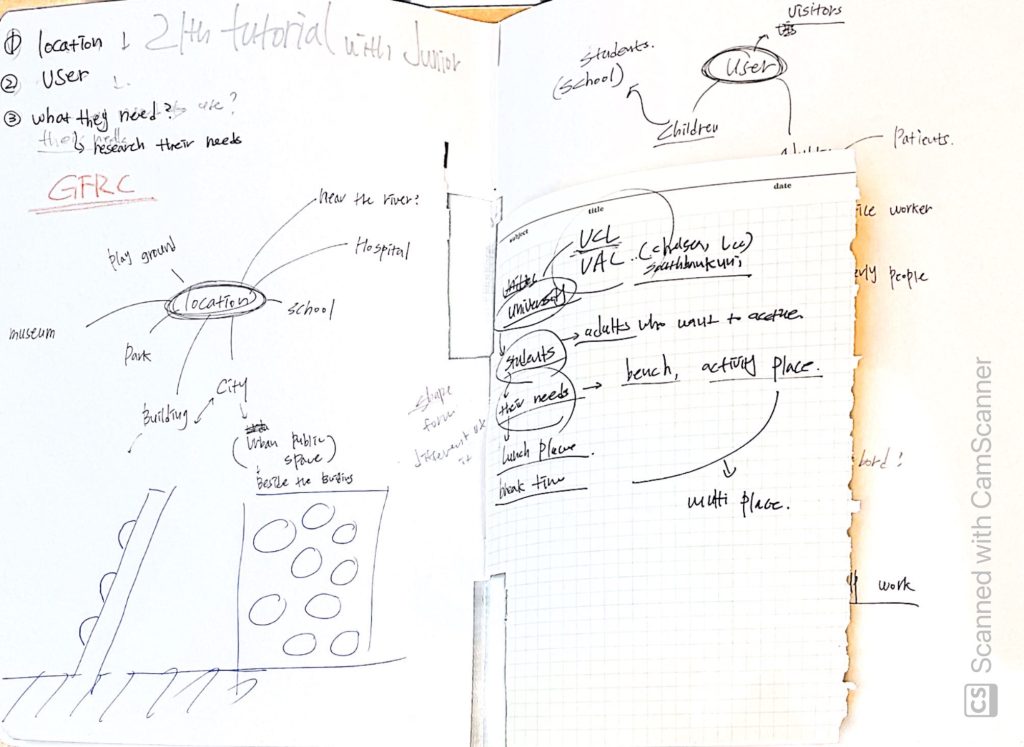 ① location
21th tutorial with Junior
② user
③ what they need?
research their needs
GFRC
near the river?
Hospital
play ground
location
school
museum
Park
City
Building
(Urban public
space)
Beside the Buildings
shape
form
Visitors
User
students.
(school)
Children
Patients.
worker
people
work
subject
title
date
UCL
UAL (chelsea, Lcc)
university
students
adults who want to
their needs
bench, activity place.
lunch place.
break time
multi place.
CS Scanned with CamScanner